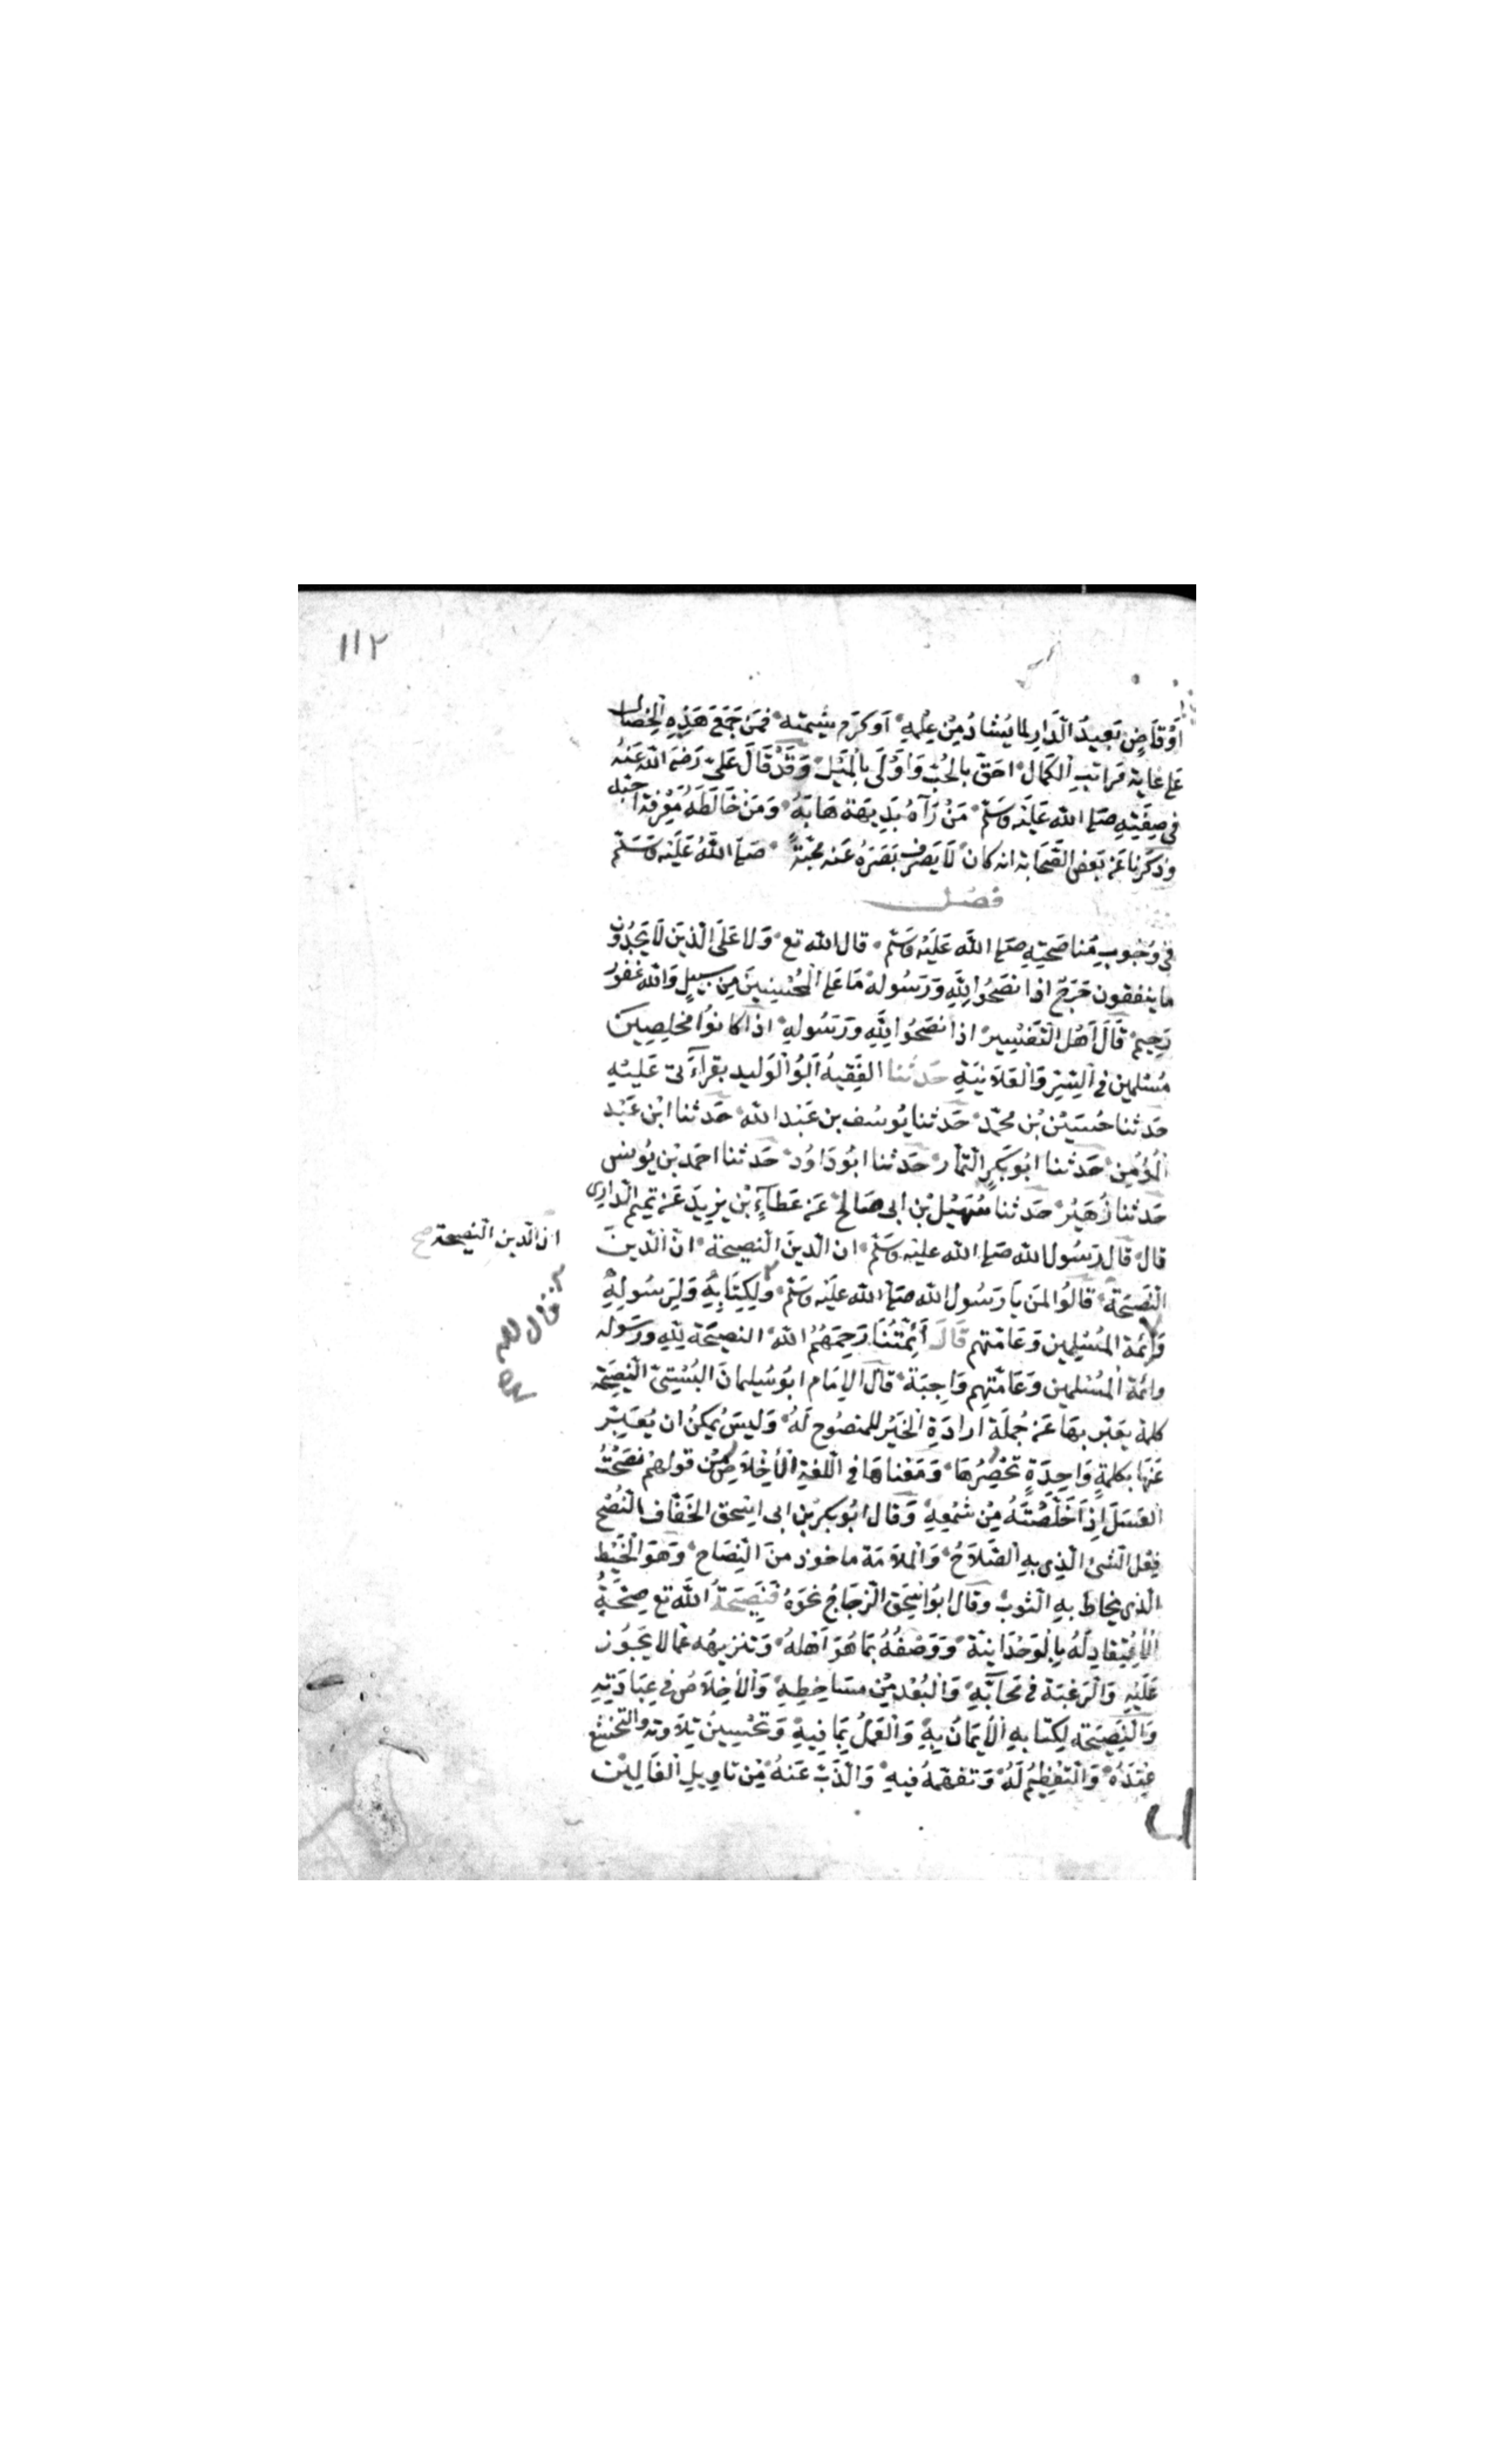 ١١٢
أَوْ قَاضٍ بَعِيدُ الدَّارِ لِمَا يُشَادُ مِنْ عِلْمِهِ أَوْ كَرَمِ شِيمَتِهِ فَمَنْ جَمَعَ هَذِهِ الْخِصَالَ
عَلَى غاية مَراتب الكَمال احَقّ بالحُبِّ وَاَوْلَى بِالْمَيْلِ وَقَدْ قَالَ عَلِيّ رَضِيَ اللهُ عَنْهُ
فِي صِفَتِهِ صَلَّى الله عَلَيْهِ وَسَلَّم مَنْ رَآهُ بَدِيهَةً هَابَهُ وَمَنْ خَالَطَهُ مَعْرِفَةً احبه
وذكرنا عَنْ بَعْضِ الصَّحَابَة انه كان لَا يَصْرِف بَصَرَهُ عَنْهُ مَحَبَّةً صَلَّى اللهُ عَلَيْهِ وَسَلَّم
فصل
فِي وُجُوبِ مُنَاصَحَتِهِ صَلَّى الله عَلَيْهِ وَسَلَّم قال الله تع وَلَا عَلَى الَّذِينَ لَا يَجِدُونَ
ما ينفقون حَرَجٌ اذا نَصَحُوا لِلَّهِ وَرَسُولِهِ مَا عَلَى الْمُحْسِنِينَ مِن سَبِيلٍ وَالله غَفُورٌ
رَحِيمٌ قَالَ أَهْلُ التَّفْسِيرِ اذا نَصَحُوا لِلَّهِ وَرَسُولِهِ اذا كَانُوا مخلِصِينَ
مُسْلِمِينَ فِي السِّرِّ وَالْعَلَانِيَةِ حَدَّثَنَا الفَقِيهُ اَبُو الْوَلِيد بقراءتى عَلَيْهِ
حَدثنا حُسَيْن بْن محمّد حَدثنا يُوسُف بن عَبْد الله حَدثنا ابْن عَبْد
الْمُؤْمِن حَدثنا ابُو بَكرٍ التمّار حَدثنا ابُو دَاوُد حَدثنا احمَد بْن يُونس
حَدثنا زُهَيْرٌ حَدثنا سُهَيْل بْن ابى صَالح عَن عَطَآءِ بْن يَزِيدَ عَن تميم الدارى
قال قال رَسُول الله صَلَّى الله عليْه وَسَلَّم ان الدِّينَ النصيحة انّ الدِّينَ
النصيحَة قالُوا لمَن يَا رَسُول الله صَلَّى الله عَلَيْه وَسَلَّم وَلِكِتَابِهِ وَلِرَسُولِهِ
وَأَئِمَّة المُسْلِمِين وَعَامَّتهم قَالَ أَئِمَّتُنَا رَحِمَهُمُ اللهُ النصيحَة لِلَّهِ وَرَسُوله
وائمّة المُسْلمين وَعَامّتهم وَاجِبَة قال الامَام ابُو سُلَيمانَ البُسْتِيّ النصِيحَة
كلمة يعَبّر بهَا عَن جُمْلَة ارادَةِ الخَيْر للمنصُوح لَهُ وَلَيسَ يُمكِنُ ان يُعَبَّر
عَنْهَا بِكلمةٍ وَاحِدَةٍ تحْصُرُهَا وَمَعْنَاهَا فِي اللُّغَةِ الْأِخْلَاصُ مِنْ قولهُمْ نَصَحْتُ
العَسَلَ إذَا خَلَّصْتَهُ مِنْ شَمْعِهِ وَقَال ابُو بكر بْن ابى اسحٰق الخَفَّاف النُّصْح
فِعْل الشىء الَّذِى بِهِ الصَّلَاحُ وَالْمُلَاءَمَة ماخوذ مِنَ النِّصَاح وَهُوَ الخَيْط
الذى يخاط بِهِ الثوب وَقَال ابُو اسْحَقَ الزّجَاجُ نحْوَهُ فَنَصِيحَةُ اللهِ تع صِحَّةُ
الْأِعْتِقَادِ لَهُ بِالْوَحْدَانِيَّة وَوَصْفُهُ بمَا هُوَ أَهْلهُ وَتنزيهُه عَمّا لا يَجُوز
عَلَيْهِ وَالرَّغْبَة فِي مَحَآبِّهِ وَالْبُعْد مِنْ مَسَاخِطِهِ وَالْأِخلَاصُ فى عِبَادَتِهِ
وَالنَّصِيحَة لِكِتَابِهِ الْأِيمَانُ بِهِ وَالْعَمَلُ بِمَا فِيهِ وَتَحْسِينُ تِلَاوته والتَّخشع
عِنْدَهُ وَالتَّعْظِيمُ لَهُ وَتَفَقُّهُهُ فِيهِ وَالذَّبُّ عَنْهُ مِنْ تاوِيلِ الْغَالِينَ
انّ الدين النصيحة صح
قال لله